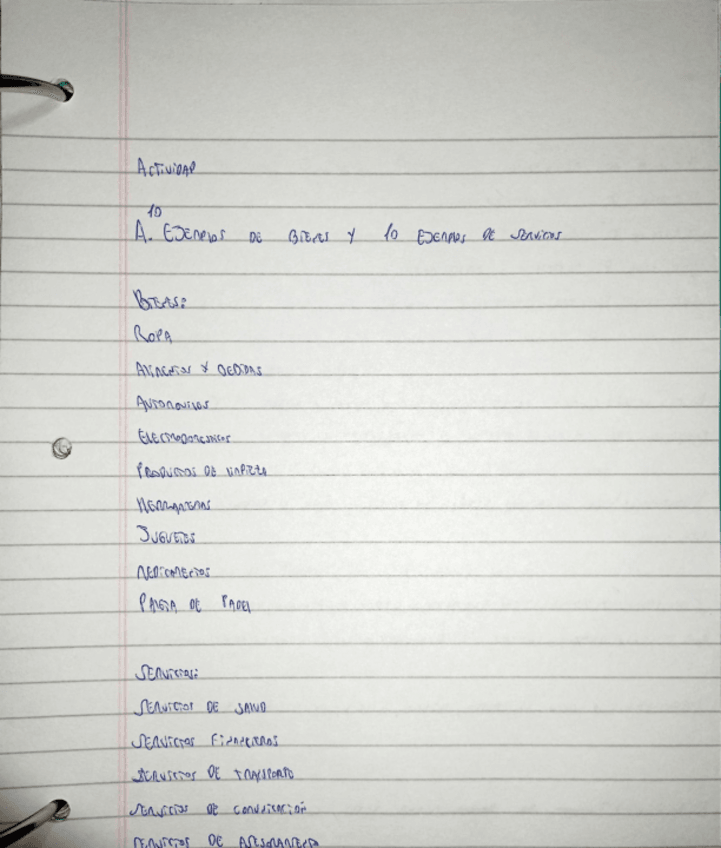 ACTIVIDAD
10
A. EJEMPLOS DE BIENES Y 10 EJEMPLOS DE SERVICIOS
BIENES:
ROPA
ALIMENTOS Y BEBIDAS
AUTOMOVILES
ELECTRODOMESTICOS
PRODUCTOS DE LIMPIEZA
HERRAMIENTAS
JUGUETES
MEDICAMENTOS
DE PAPEL
SERVICIOS:
SERVICIOS DE SALUD
SERVICIOS FINANCIEROS
SERVICIOS DE TRANSPORTE
SERVICIOS DE COMUNICACIÓN
SERVICIOS DE ASESORAMIENTO